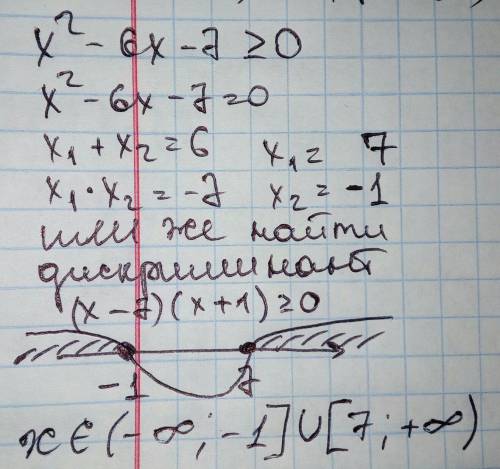 x² - 6x - 7 ≥ 0
x² - 6x - 7 = 0
x₁ + x₂ = 6 x₁ = 7
x₁ · x₂ = -7 x₂ = -1
или же найти
дискриминант
(x - 7)(x + 1) ≥ 0
-1 7
x ∈ (-∞; -1] ∪ [7; +∞)